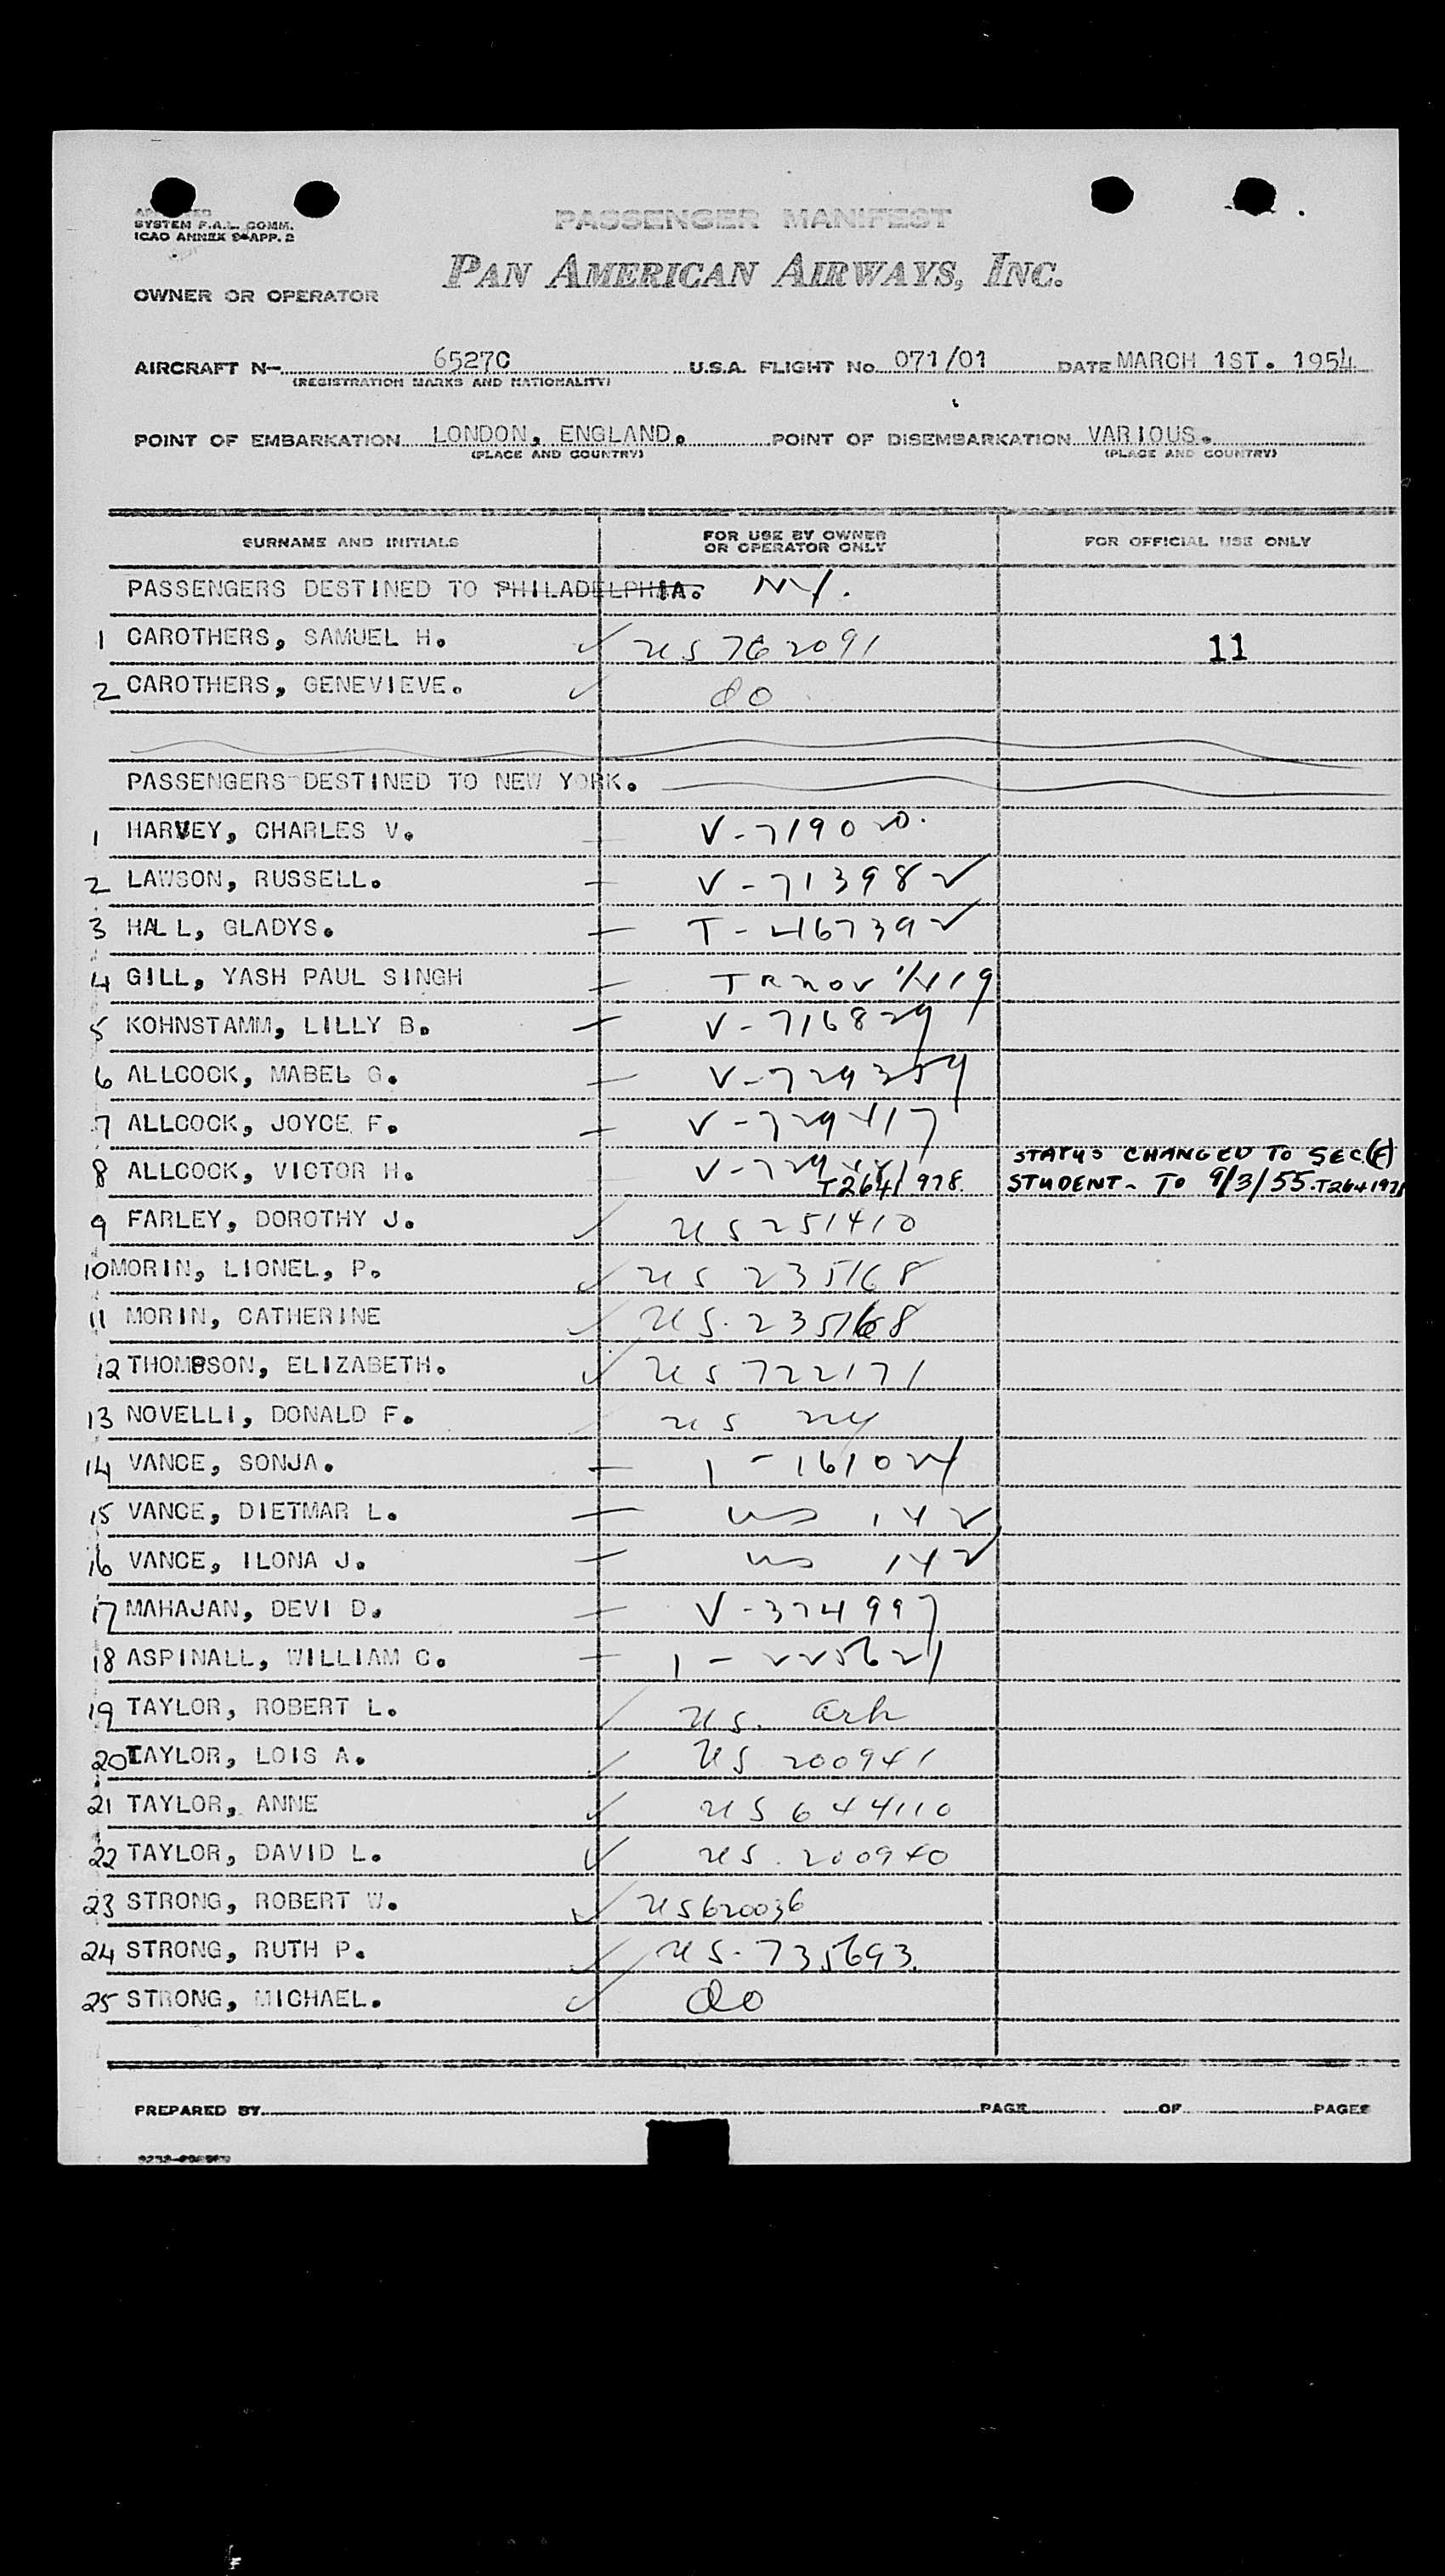 SYSTEM F.A.L. COMM.
ICAO ANNEX 9-APP. 2
PASSENGER MANIFEST
PAN AMERICAN AIRWAYS, INC.
OWNER OR OPERATOR
AIRCRAFT N- 6527C U.S.A. FLIGHT No. 071/01 DATE MARCH 1ST. 1954
(REGISTRATION MARKS AND NATIONALITY)
POINT OF EMBARKATION LONDON, ENGLAND. POINT OF DISEMBARKATION VARIOUS.
(PLACE AND COUNTRY) (PLACE AND COUNTRY)
SURNAME AND INITIALS FOR USE BY OWNER OR OPERATOR ONLY FOR OFFICIAL USE ONLY
PASSENGERS DESTINED TO PHILADELPHIA. NY.
1 CAROTHERS, SAMUEL H. US 762091 11
2 CAROTHERS, GENEVIEVE. do
PASSENGERS DESTINED TO NEW YORK.
1 HARVEY, CHARLES V. V-719020.
2 LAWSON, RUSSELL. V-713982
3 HALL, GLADYS. T-467392
4 GILL, YASH PAUL SINGH
5 KOHNSTAMM, LILLY B. V-716829
6 ALLCOCK, MABEL G. V-729354
7 ALLCOCK, JOYCE F. V-729417
8 ALLCOCK, VICTOR H. T2641978. STATUS CHANGED TO SEC.(F)
STUDENT- TO 9/3/55.
9 FARLEY, DOROTHY J. US 251410
10 MORIN, LIONEL, P. US 235168
11 MORIN, CATHERINE US. 235168
12 THOMPSON, ELIZABETH. US 722171
13 NOVELLI, DONALD F. US NY
14 VANCE, SONJA. 1-161024
15 VANCE, DIETMAR L. 142
16 VANCE, ILONA J. 142
17 MAHAJAN, DEVI D. V-374997
18 ASPINALL, WILLIAM C. 1-225621
19 TAYLOR, ROBERT L. US. Ark
20 TAYLOR, LOIS A. US 200941
21 TAYLOR, ANNE US 644110
22 TAYLOR, DAVID L. US. 200940
23 STRONG, ROBERT W. US 620036
24 STRONG, RUTH P. US-735693.
25 STRONG, MICHAEL. do
PREPARED BY PAGE OF PAGES